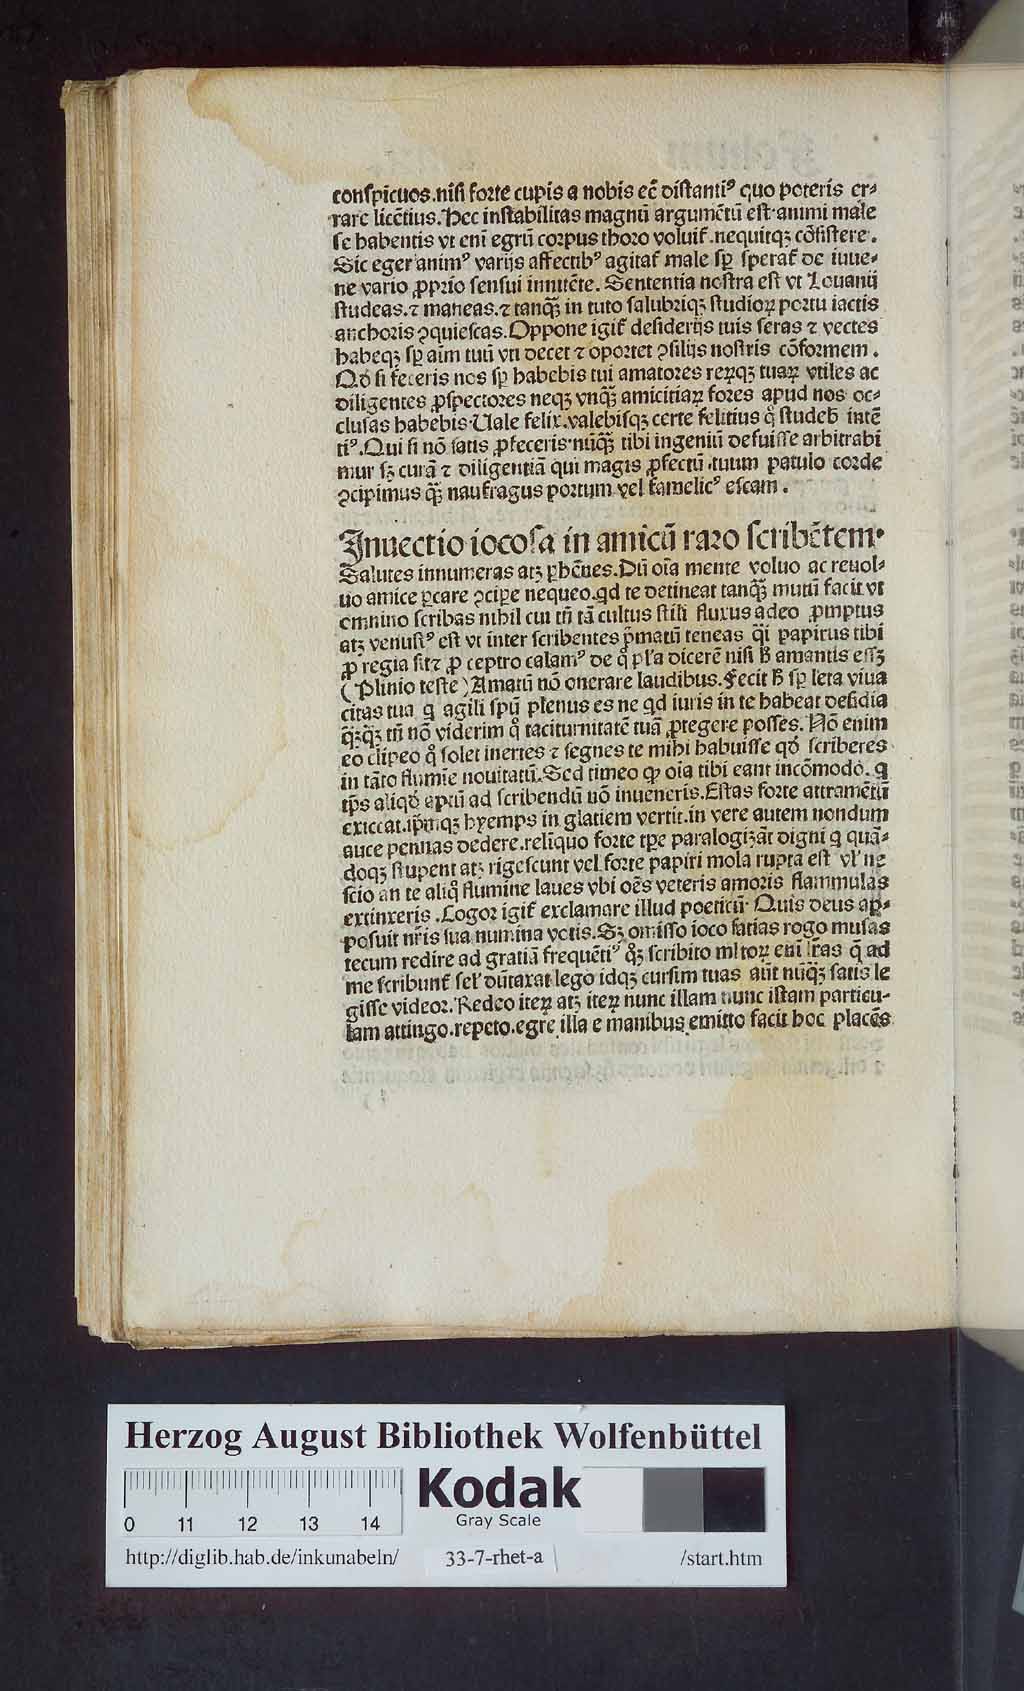 conſpicuos.niſi forte cupis a nobis eē diſtantiꝰ quo poteris er⸗
rare licētius. Hec inſtabilitas magnū argumētū eſt animi male
ſe habentis vt eni egrū corpus thoro voluit̉.nequitqꝫ cōſiſtere.
Sic eger animꝰ varijs affectibꝰ agitat̉ male ſꝑ ſperat̉ de iuue⸗
ne vario ꝓprio ſenſui innitēte. Sententia noſtra eſt vt Louanij
ſtudeas.⁊ maneas.⁊ tanqꝫ̄ in tuto ſalubriqꝫ ſtudioꝝ portu iactis
anchoris ꝯquieſcas.Oppone igit̉ deſiderijs tuis ſeras ⁊ vectes
habeqꝫ ſꝑ aīm tuū vti decet ⁊ oportet ꝯſilijs noſtris cōformem.
Qd̓ ſi feceris nos ſꝑ habebis tui amatores reꝝqꝫ tuaꝝ vtiles ac
diligentes ꝓſpectores neqꝫ vnqꝫ̄ amicitiaꝝ fores apud nos oc⸗
cluſas habebis.Uale felix.valebiſqꝫ certe felitius q̓ ſtudeb̄ intē
tiꝰ.Qui ſi nō ſatis ꝓfeceris.nūqꝫ̄ tibi ingeniū defuiſſe arbitrabi
mur ſꝫ curā ⁊ diligentiā qui magis ꝓfectū tuum patulo corde
ꝯcipimus qꝫ̄ naufragus portum vel famelicꝰ eſcam.
Inuectio iocoſa in amicū raro ſcribētem.
Salutes innumeras atꝫ ꝑhēnes.Dū oīa mente voluo ac reuol⸗
uo amice ꝑcare ꝯcipe nequeo.qd te detineat tanqꝫ̄ mutū facit vt
omnino ſcribas nihil cui tn̄ tā cultus ſtili fluxus adeo ꝓmptus
atꝫ venuſtꝰ eſt vt inter ſcribentes p̄matū teneas q̄i papirus tibi
ꝓ regia ſit⁊ ꝓ ceptro calamꝰ de q̓ pl̓a dicerē niſi h̄ amantis eſſꝫ
(Plinio teſte) Amatū nō onerare laudibus.Fecit h̄ ſꝑ leta viua
citas tua q agili ſpū plenus es ne qd iuris in te habeat deſidia
qꝫ̄qꝫ̄ tn̄ nō viderim q̊ taciturnitatē tuā ꝓtegere poſſes. Nō enim
eo clipeo q̊ ſolet inertes ⁊ ſegnes te mihi habuiſſe qd̓ ſcriberes
in tāto flumīe nouitatū.Sed timeo ꝙ oīa tibi eant incōmodo. q
tp̄s aliqd̓ aptū ad ſcribendū nō inueneris.Eſtas forte attramētū
exiccat.ip̄mqꝫ hyemps in glatiem vertit.in vere autem nondum
auce pennas dedere.reliquo forte tꝑe paralogizāt digni q quā⸗
doqꝫ ſtupent atꝫ rigeſcunt vel forte papiri mola rupta eſt vl̓ ne
ſcio an te aliq̊ flumine laues vbi oēs veteris amoris flammulas
extinxeris.Cogor igit̉ exclamare illud poeticū Quis deus ap⸗
poſuit nr̄is ſua numina votis.Sꝫ omiſſo ioco facias rogo muſas
tecum redire ad gratiā frequētiꝰ qꝫ̊ ſcribito ml̓toꝝ eni lr̄as q̄ ad
me ſcribunt̉ ſel̓ dūtaxat lego idqꝫ curſim tuas aūt nūqꝫ̄ ſatis le
giſſe videor.Redeo iteꝝ atꝫ iteꝝ nunc illam nunc iſtam particu⸗
lam attingo.repeto.egre illa e manibus emitto facit hoc placēs
Herzog August Bibliothek Wolfenbüttel
Kodak
Gray Scale
0 11 12 13 14
http://diglib.hab.de/inkunabeln/ 33-7-rhet-a /start.htm